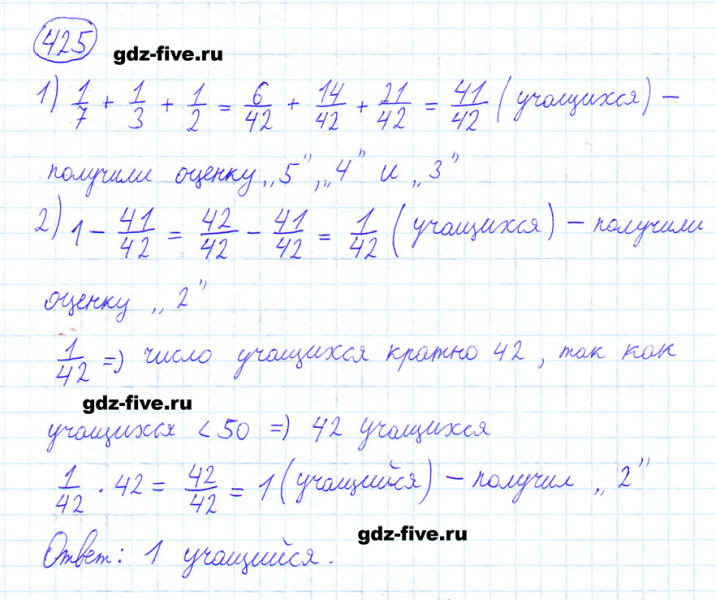 425
gdz-five.ru
1) 1/7 + 1/3 + 1/2 = 6/42 + 14/42 + 21/42 = 41/42 (учащихся) –
получили оценку „5”, „4” и „3”
2) 1 – 41/42 = 42/42 – 41/42 = 1/42 (учащихся) – получили
оценку „2”
1/42 => число учащихся кратно 42, так как
gdz-five.ru
учащихся < 50 => 42 учащихся
1/42 · 42 = 42/42 = 1 (учащийся) – получил „2”
gdz-five.ru
Ответ: 1 учащийся.